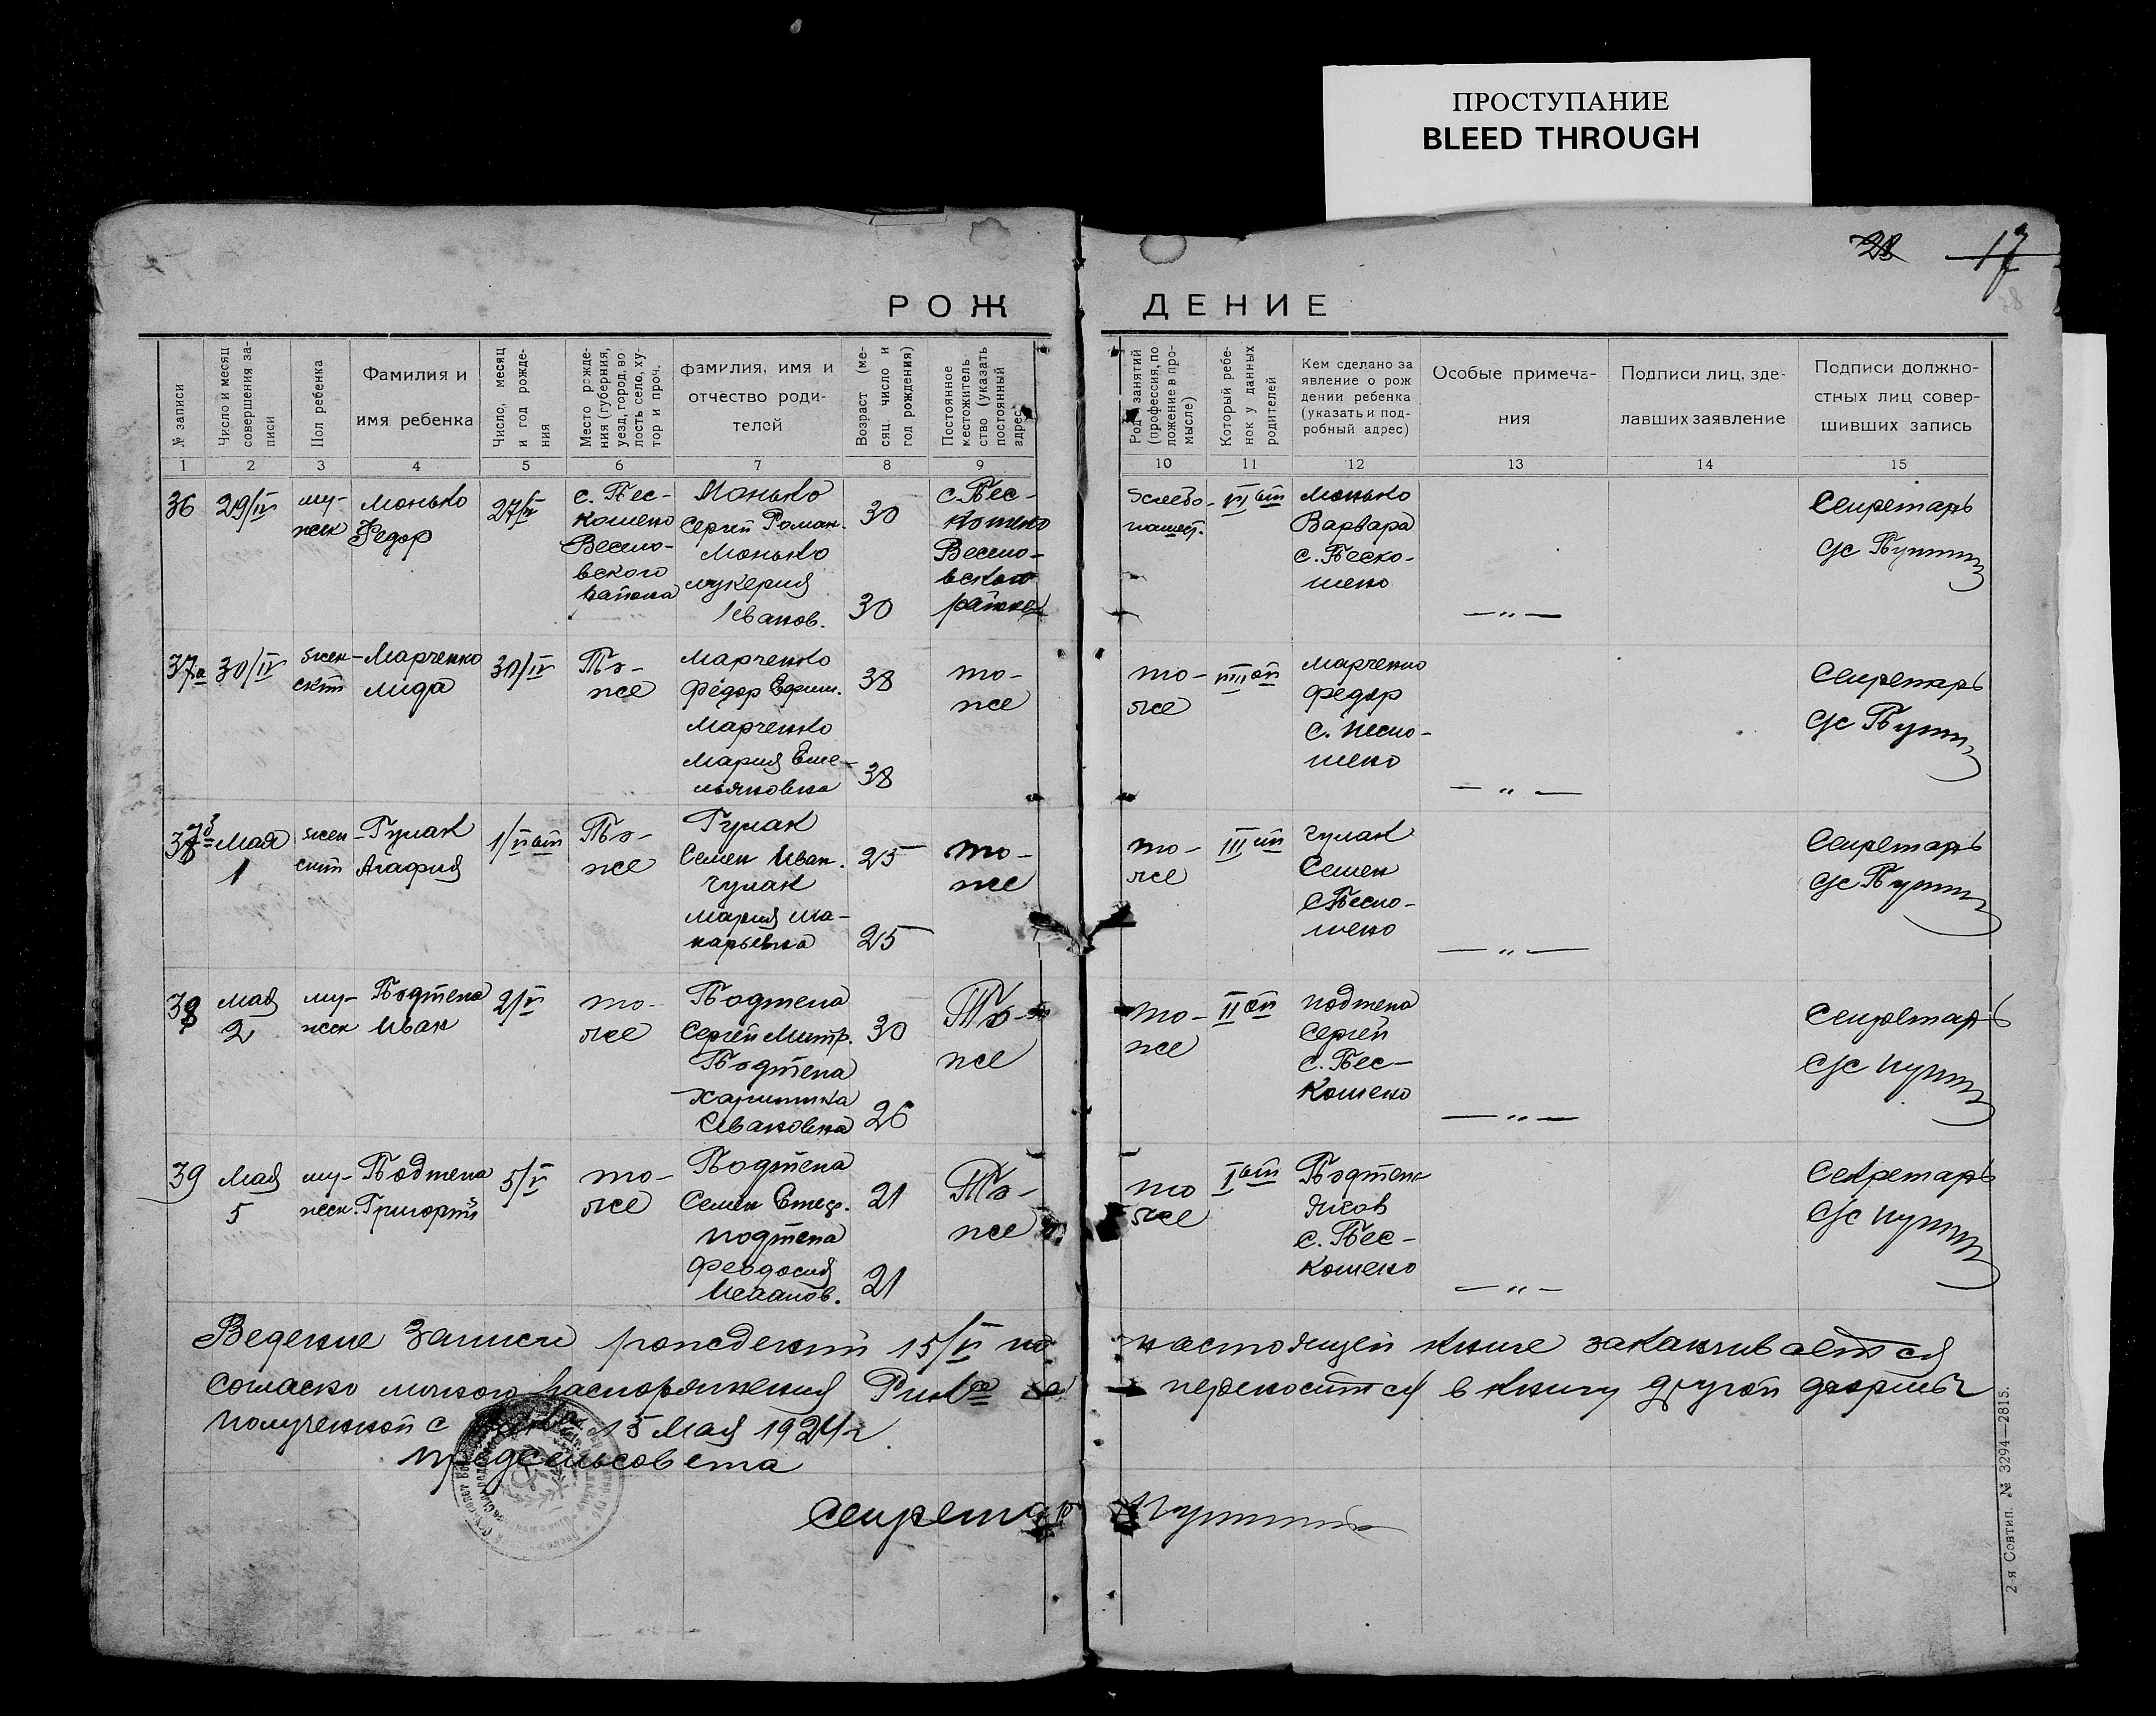 ПРОСТУПАНИЕ
BLEED THROUGH
28 17
РОЖДЕНИЕ
№ записи
Число и месяц совершения записи
Пол ребенка
Фамилия и
имя ребенка
Число, месяц и год рождения
Место рождения (губерния, уезд, город, волость село, хутор и проч.
фамилия, имя и
отчество роди-
телей
Возраст (месяц число и год рождения)
Постоянное местожительство (указать постоянный адрес
Род занятий (профессия, положение в промысле)
Который ребенок у данных родителей
Кем сделано за
явление о рож
дении ребенка
(указать и под-
робный адрес)
Особые примеча-
ния
Подписи лиц, зде-
лавших заявление
Подписи должно-
стных лиц совер-
шивших запись
1 2 3 4 5 6 7 8 9 10 11 12 13 14 15
36 29/IV му-
жск
Монько
Федор
27/IV
с. Пес-
кошено
Весело-
вского
района
Монько
Сергей Роман.
Монько
Лукерия
Иванов.
30
30
с. Пес-
кошено
Весело-
вского
района
Хлебо-
пашест.
Монько
Варвара
с. Песко-
шено
— " —
Секретарь
с/с
37а 30/IV жен-
ский
Марченко
Лида
30/IV
То-
же
Марченко
Федор Ефим.
Марченко
Мария Еме-
льяновна
38
38
то-
же
то-
же
Марченко
Федор
с. Песко-
шено
— " —
Секретарь
с/с
37б Мая
1
жен-
ский
Гулак
Агафия
То-
же
Гулак
Семен Иван.
Гулак
Мария Ма-
карьевна
25
25
то-
же
то-
же
IIIий
Гулак
Семен
с. Песко-
шено
— " —
Секретарь
с/с
38 Мая
2
му-
жск
Подтепа
Иван
2/V
то-
же
Подтепа
Сергей Митр.
Подтепа
Харитина
Ивановна
30
26
То-
же
то-
же
IIой
Подтепа
Сергей
с. Пес-
кошено
— " —
Секретарь
с/с
39 Мая
5
му-
жск.
Подтепа
Григорий
5/V
то-
же
Подтепа
Семен
Подтепа
Феодосия
21
21
То-
же
то
же
Iый
Подтепа
Яков
с. Пес-
кошено
— " —
Секретарь
с/с
Ведение записи рождений 15/V по настоящей книге заканчивается
согласно распоряжения Рика переносится в книгу другой формы
полученной с 15 Мая 1924 г.
Предсельсовета
Секретарь
2-я Совтип. № 3294—2815.